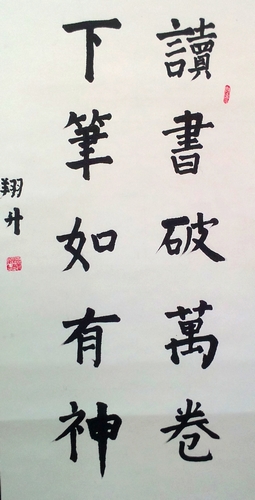 讀書破萬卷
下筆如有神
翔升